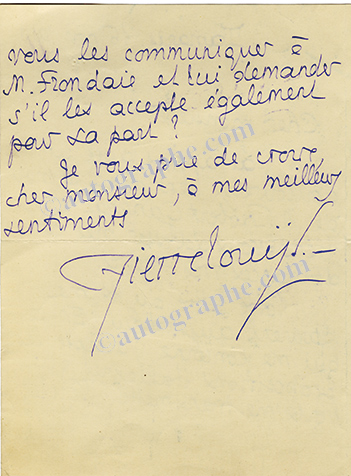 vous les communiquer à
M. Frondaie et lui demander
s'il les accepte également
pour sa part ?
Je vous prie de croire,
cher monsieur, à mes meilleurs
sentiments
Pierre Louÿs
©autographe.com
©autographe.com